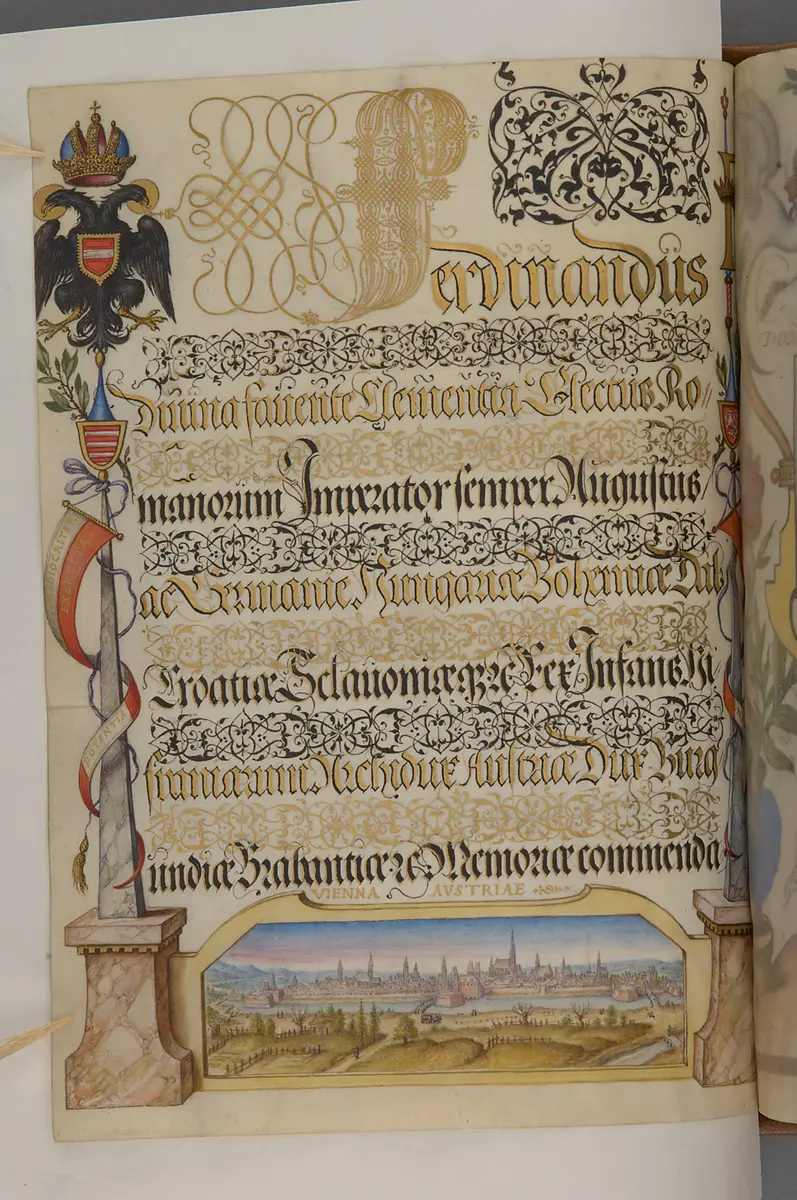 Ferdinandus
Divina favente Clementia Electus Ro//
manorum Imperator semper Augustus
ac Germanie, Hungariæ Bohemiæ Dal
Croatiæ Sclavoniæ qz ꝛc Rex Infans Hi
spaniarum, Archidux Austriæ Dux Burg
undiæ Brabantiæ ꝛc Memoriæ commenda
MEDIOCRITA
EXCELTA
VIENNA AVSTRIAE